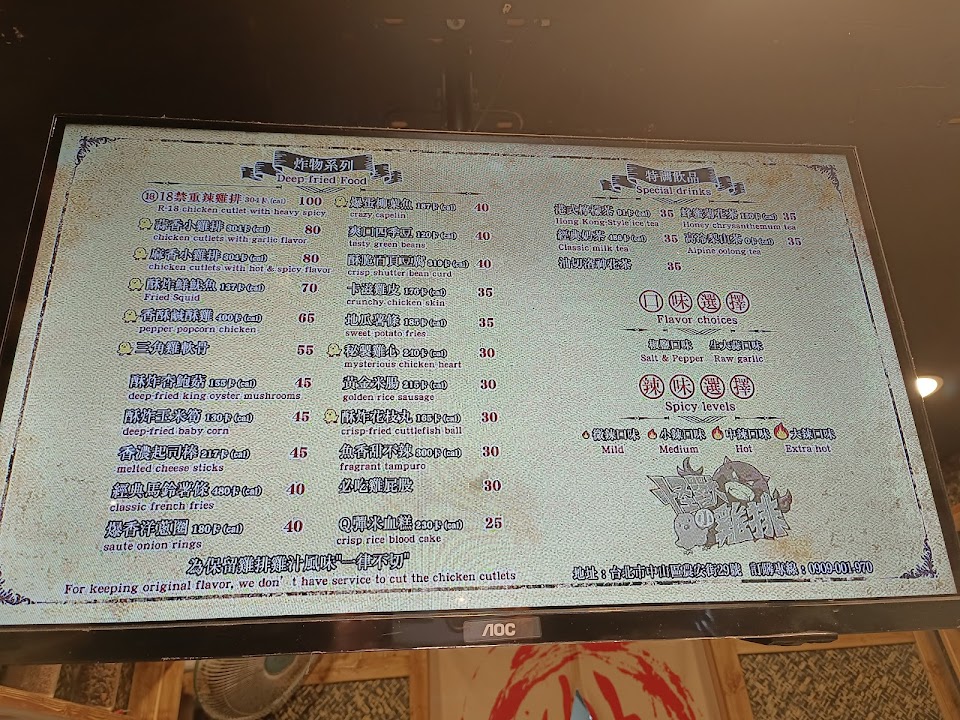 炸物系列
Deep fried Food
18禁重辣雞排 304卡(cal) 100
R-18 chicken cutlet with heavy spicy
蒜香小雞排 304卡(cal) 80
chicken cutlets with garlic flavor
麻香小雞排 304卡(cal) 80
chicken cutlets with hot & spicy flavor
酥炸鮮魷魚 137卡(cal) 70
Fried Squid
香酥鹹酥雞 400卡(cal) 65
pepper popcorn chicken
三角雞軟骨 55
酥炸杏鮑菇 155卡(cal) 45
deep-fried king oyster mushrooms
酥炸玉米筍 130卡(cal) 45
deep-fried baby corn
香濃起司棒 217卡(cal) 45
melted cheese sticks
經典馬鈴薯條 480卡(cal) 40
classic french fries
爆香洋蔥圈 180卡(cal) 40
saute onion rings
爆蛋柳葉魚 187卡(cal) 40
crazy capelin
爽口四季豆 120卡(cal) 40
tasty green beans
酥脆百頁豆腐 310卡(cal) 40
crisp shutter bean curd
卡滋雞皮 176卡(cal) 35
crunchy chicken skin
地瓜薯條 185卡(cal) 35
sweet potato fries
秘製雞心 240卡(cal) 30
mysterious chicken heart
黃金米腸 215卡(cal) 30
golden rice sausage
酥炸花枝丸 165卡(cal) 30
crisp-fried cuttlefish ball
魚香甜不辣 300卡(cal) 30
fragrant tampuro
必吃雞屁股 30
Q彈米血糕 230卡(cal) 25
crisp rice blood cake
為保留雞排雞汁風味"一律不切"
For keeping original flavor, we don't have service to cut the chicken cutlets
特調飲品
Special drinks
港式檸檬茶 91卡(cal) 35
Hong Kong-Style ice tea
經典奶茶 卡(cal) 35
Classic milk tea
油切洛神花茶 35
蜂蜜菊花茶 150卡(cal) 35
Honey chrysanthemum tea
高冷梨山茶 0卡(cal) 35
Alpine oolong tea
口味選擇
Flavor choices
椒鹽口味 生大蒜口味
Salt & Pepper Raw garlic
辣味選擇
Spicy levels
微辣口味 小辣口味 中辣口味 大辣口味
Mild Medium Hot Extra hot
怪獸の雞排
地址：台北市中山區農安街29號 訂購專線：0809-001-970
AOC